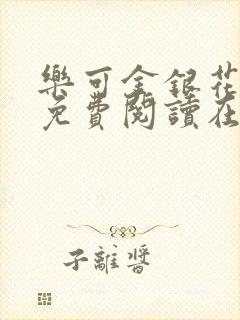 樂可金銀花
免費閱讀在
子離醬